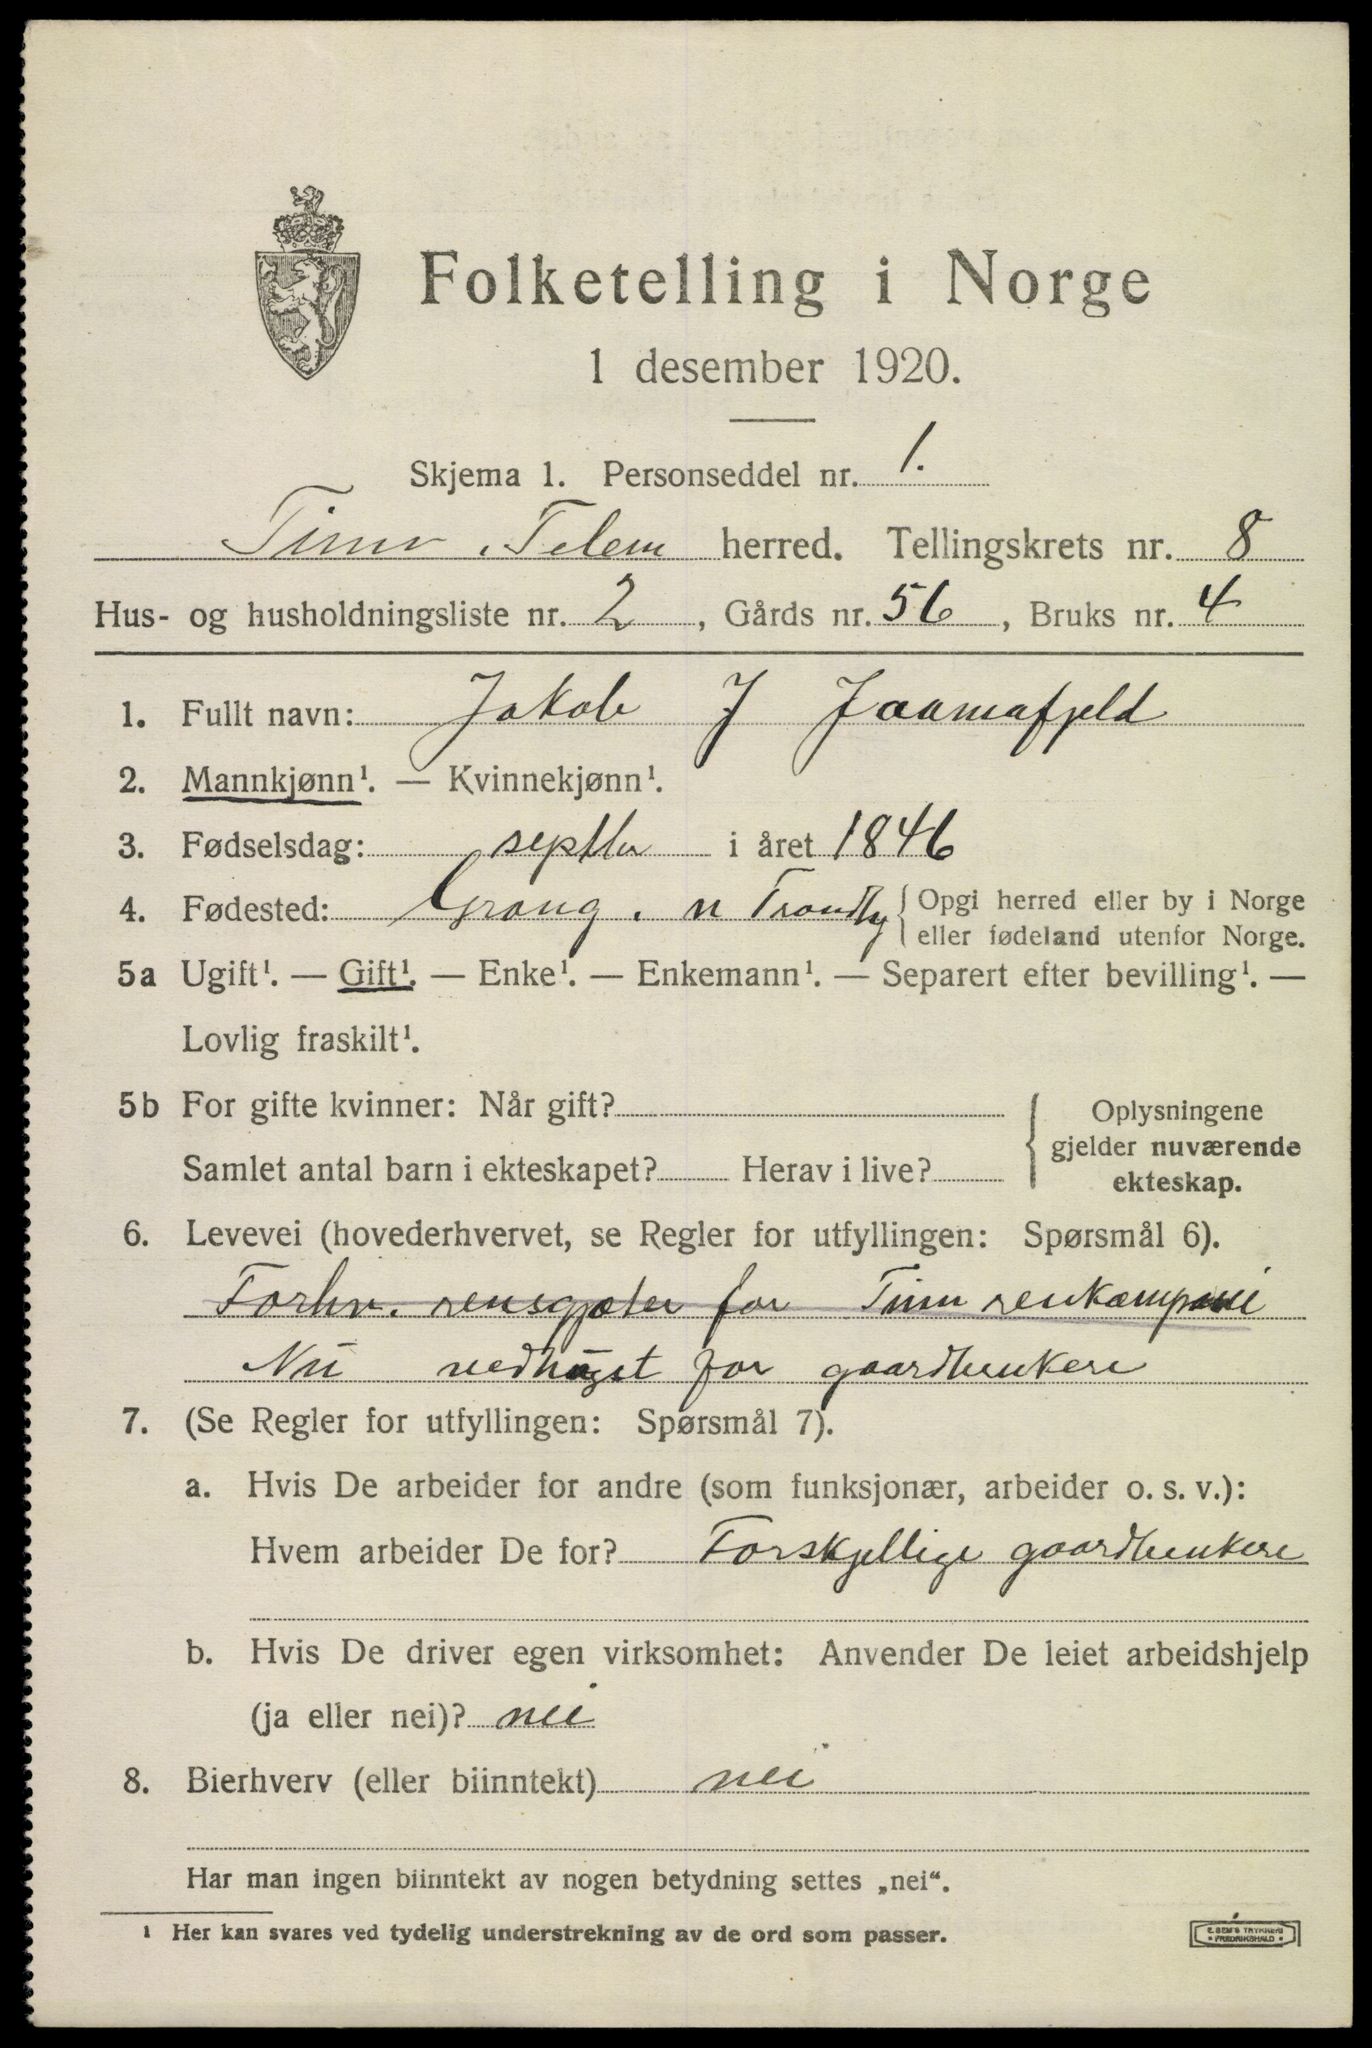 Folketelling i Norge
1 desember 1920.
Skjema 1. Personseddel nr. 1.
Tinn, Telem herred. Tellingskrets nr. 8
Hus- og husholdningsliste nr. 2, Gårds nr. 56, Bruks nr. 4
1. Fullt navn: Jakob J Jaamafjeld
2. Mannkjønn¹. — Kvinnekjønn¹.
3. Fødselsdag: septbr i året 1846
4. Fødested: Grong. n Trondhj { Opgi herred eller by i Norge
eller fødeland utenfor Norge.
5a Ugift¹. — Gift¹. — Enke¹. — Enkemann¹. — Separert efter bevilling¹. —
Lovlig fraskilt¹.
5b For gifte kvinner: Når gift?
Samlet antal barn i ekteskapet? Herav i live?
{ Oplysningene
gjelder nuværende
ekteskap.
6. Levevei (hovederhvervet, se Regler for utfyllingen: Spørsmål 6).
Forhv. rensgjæter for Tinn renkompani
Nu vedhugst for gaardbrukere
7. (Se Regler for utfyllingen: Spørsmål 7).
a. Hvis De arbeider for andre (som funksjonær, arbeider o. s. v.):
Hvem arbeider De for? Forskjellige gaardbrukere
b. Hvis De driver egen virksomhet: Anvender De leiet arbeidshjelp
(ja eller nei)? nei
8. Bierhverv (eller biinntekt) nei
Har man ingen biinntekt av nogen betydning settes „nei“.
¹ Her kan svares ved tydelig understrekning av de ord som passer.
E. SEM'S TRYKKERI
FREDRIKSHALD